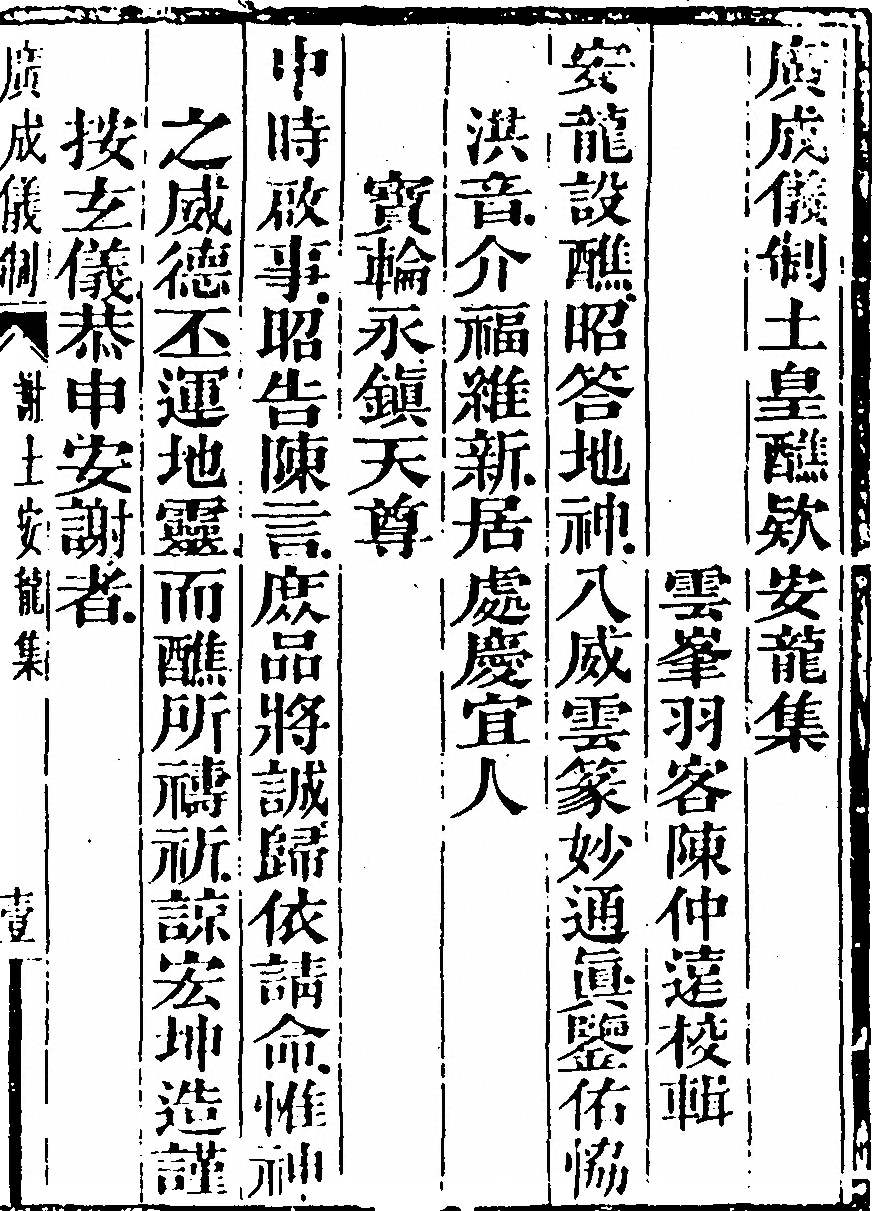 廣成儀制土皇醮欵安龍集
雲峯羽客陳仲遠校輯
安龍設醮昭答地神八威雲篆妙通眞鑒佑恊
洪音介福維新居處慶宜人
寶輪永鎮天尊
中時啟事昭告陳言庶品將誠歸依請命惟神
之威德丕運地靈而醮所禱祈諒宏坤造謹
按玄儀恭申安謝者
廣成儀制 謝土安龍集 壹